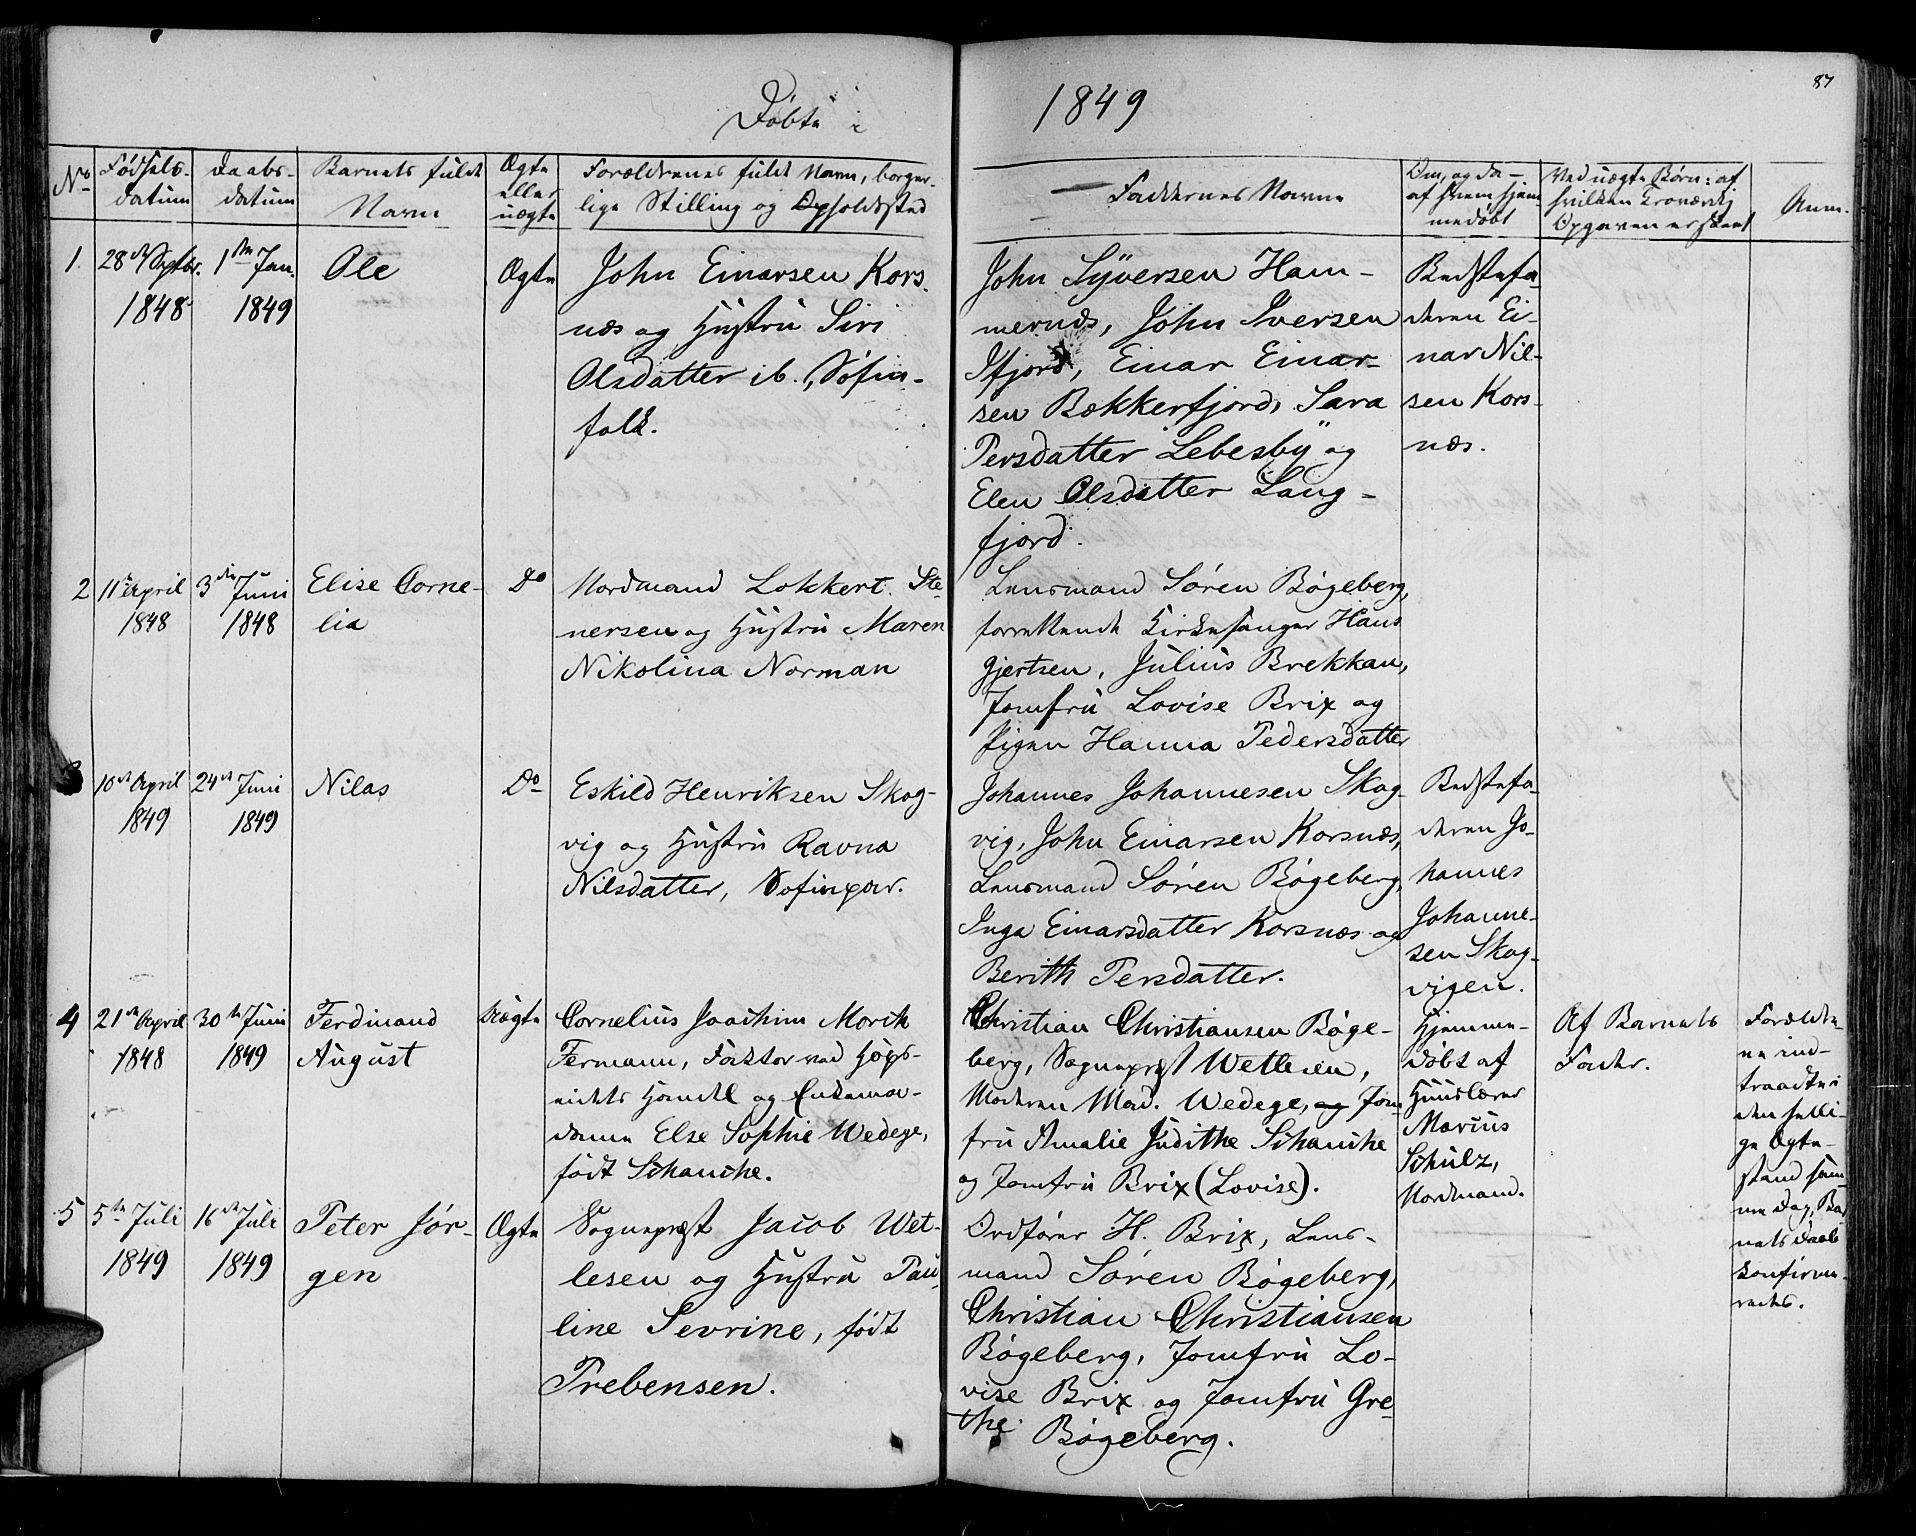 87
Døbte i 1849
No
Fødsels-
datum
Daabs-
datum
Barnets fulde
Navn
Ægte
eller
uægte
Forældrenes fulde Navn, borger-
lige Stilling og Opholdssted
Faddernes Navne
Om, og da
af hvem hjem-
medøbt
Ved uægte Børn: af
hvilken Troværdig
Opgaven er skeet
Anm.
1.
28de Septbr.
1848
1ste Jan.
1849
Ole
Ægte
John Einarsen Kors-
næs og Hustru Siri
Olsdatter ib., Søfin-
folk.
John Syversen Ham-
mernæs, John Iversen
Ifjord, Einar Einar-
sen Bekkerfjord, Sara
Persdatter Lebesby og
Elen Olsdatter Lang-
fjord.
Bedstefa-
deren Ei-
nar Nil-
sen Kors-
næs.
2
11te April
1848
3die Juni
1848
Elise Corne-
lia
Do
Nordmand Lokkert Ste-
nersen og Hustru Maren
Nikolina Norman
Lensmand Søren Bøgeberg,
forrettende Kirkesanger Hans
Gjertsen, Julius Brekkan,
Jomfru Lovise Brix og
Pigen Hanna Pedersdatter
3
10de April
1849
24de Juni
1849
Nilas
Do
Eskild Henriksen Skog-
vig og Hustru Ravna
Nilsdatter, Søfinpar.
Johannes Johannesen Skog-
vig, John Einarsen Korsnæs,
Lensmand Søren Bøgeberg,
Inga Einarsdatter Korsnæs og
Berith Persdatter.
Bedstefa-
deren Jo-
hannes
Johanne-
sen Skog-
vigen.
4
21de April
1848
30te Juni
1849
Ferdinand
August
Uægte
Cornelius Joachim Morik
Fermann, Faktor ved Hops-
eidets Handel og Enkema-
dame Else Sophie Wedege,
født Schanche.
Christian Christiansen Bøge-
berg, Sognepræst Wetlesen,
Moderen Mad. Wedege, og Jom-
fru Amalie Judithe Schanche
og Jomfru Brix (Lovise).
Hjemme-
døbt af
Huuslærer
Marius
Schulz,
Nordmand.
Af Barnets
Fader.
Forældre-
ne ind-
traadte i
den helli-
ge Ægte-
stand sam-
me Dag, Bar-
nets Daab
konfirme-
redes.
5
5te Juli
1849
16de Juli
1849
Peter Jør-
gen
Ægte
Sognepræst Jacob Wet-
lesen og Hustru Pau-
line Sevrine, født
Prebensen.
Ordfører H. Brix, Lens-
mand Søren Bøgeberg,
Christian Christiansen
Bøgeberg, Jomfru Lo-
vise Brix og Jomfru Gre-
the Bøgeberg.